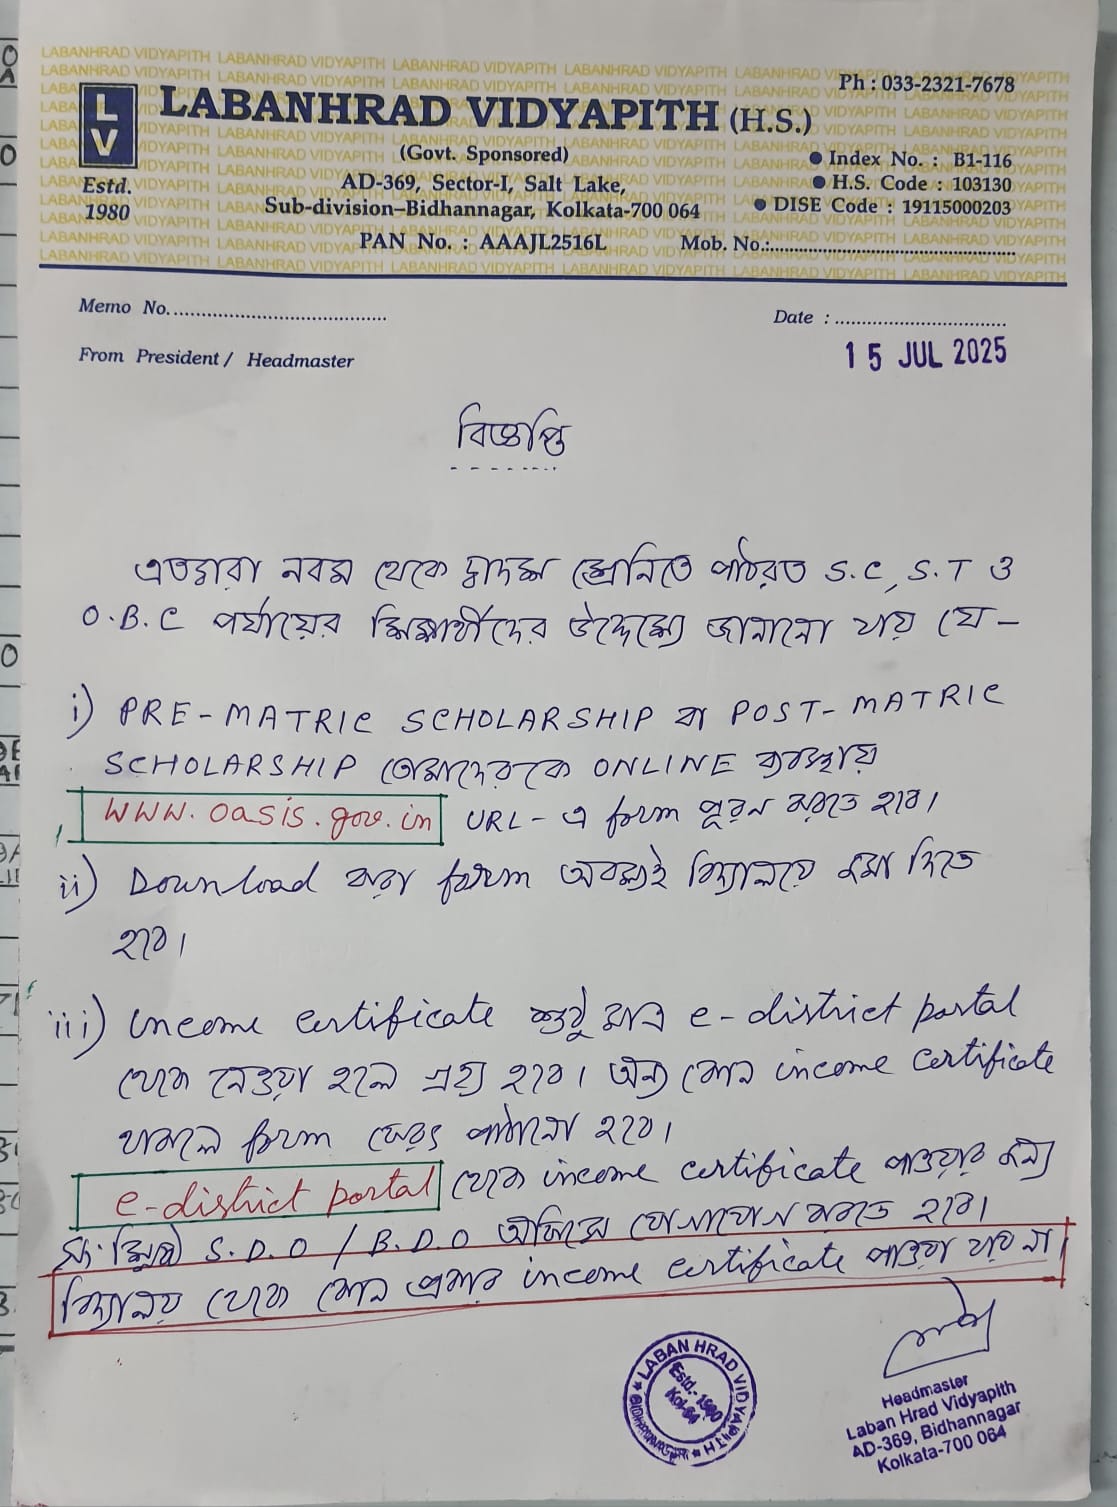 Ph : 033-2321-7678
LV
LABANHRAD VIDYAPITH (H.S.)
(Govt. Sponsored)
Index No. : B1-116
Estd.
1980
AD-369, Sector-I, Salt Lake,
H.S. Code : 103130
Sub-division–Bidhannagar, Kolkata-700 064
DISE Code : 19115000203
PAN No. : AAAJL2516L
Mob. No.:
Memo No.
Date :
From President / Headmaster
15 JUL 2025
বিজ্ঞপ্তি
এতদ্বারা নবম থেকে দ্বাদশ শ্রেনিতে পাঠরত S.C, S.T ও
O.B.C পর্যায়ের শিক্ষার্থীদের উদ্দেশ্যে জানানো যায় যে–
i) PRE-MATRIC SCHOLARSHIP বা POST-MATRIC
SCHOLARSHIP তোমাদেরকে ONLINE ব্যবস্থায়
WWW.oasis.gov.in URL-এ form পূরন করতে হবে।
ii) Download করা form অবশ্যই বিদ্যালয়ে জমা দিতে
হবে।
iii) Income certificate শুধু মাত্র e-district portal
থেকে নেওয়া হলে গ্রাহ্য হবে। অন্য কোন income certificate
থাকলে form ফেরৎ পাঠানো হবে।
e-district portal থেকে income certificate পাওয়ার জন্য
সংশ্লিষ্ট S.D.O / B.D.O অফিসে যোগাযোগ করতে হবে।
বিদ্যালয় থেকে কোন প্রকার income certificate পাওয়া যায় না।
LABAN HRAD VIDYAPITH
Estd.-1980
Kol-64
BIDHANNAGAR
Headmaster
Laban Hrad Vidyapith
AD-369, Bidhannagar
Kolkata-700 064